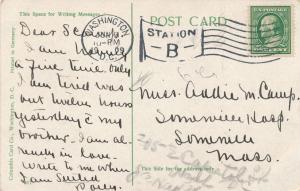 This Space for Writing Messages
POST CARD
WASHINGTON,
D.C.
10-PM
STATION
B
Dear
I am having
a fine time only
I am tired was
out twelve hours
yesterday & my
brother. I am al-
ready in love.
write to me when
I am settled
Dolly.
Miss Addie M Camp.
Somerville Hosp.
Somerville
Mass.
This Side for the address only
Columbia Card Co., Washington, D. C.
Printed in Germany